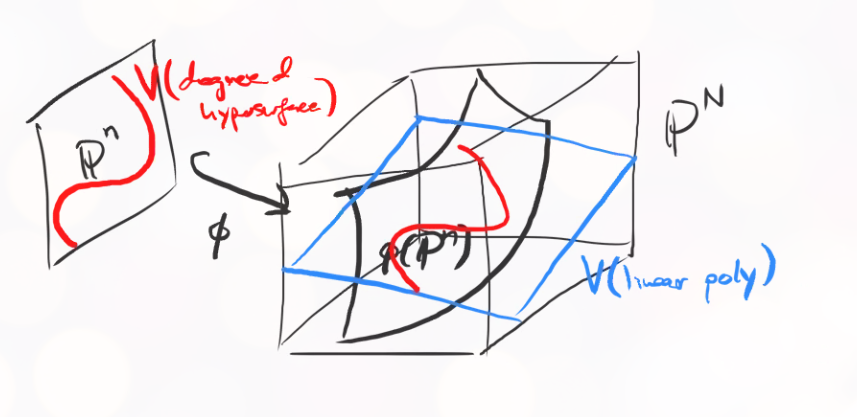 V(degree d
hypersurface)
ℙⁿ
ℙᴺ
φ
φ(ℙⁿ)
V(linear poly)